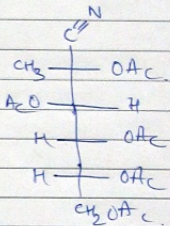 N
C
CH3 OAC.
ACO H
H OAC
H OAC
CH2OAC.